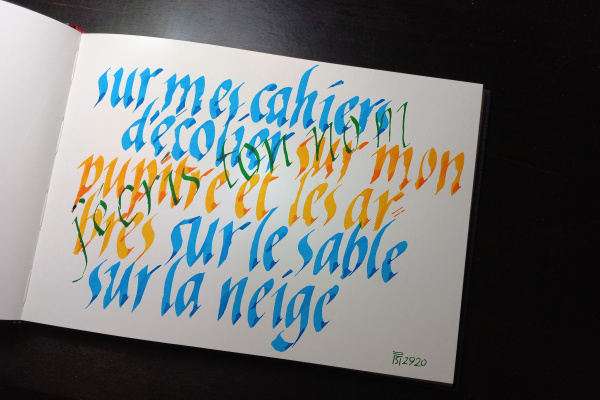 sur mes cahiers
d'écolier sur mon
pupitre et les ar=
bres sur le sable
sur la neige
j'écris ton nom
2920